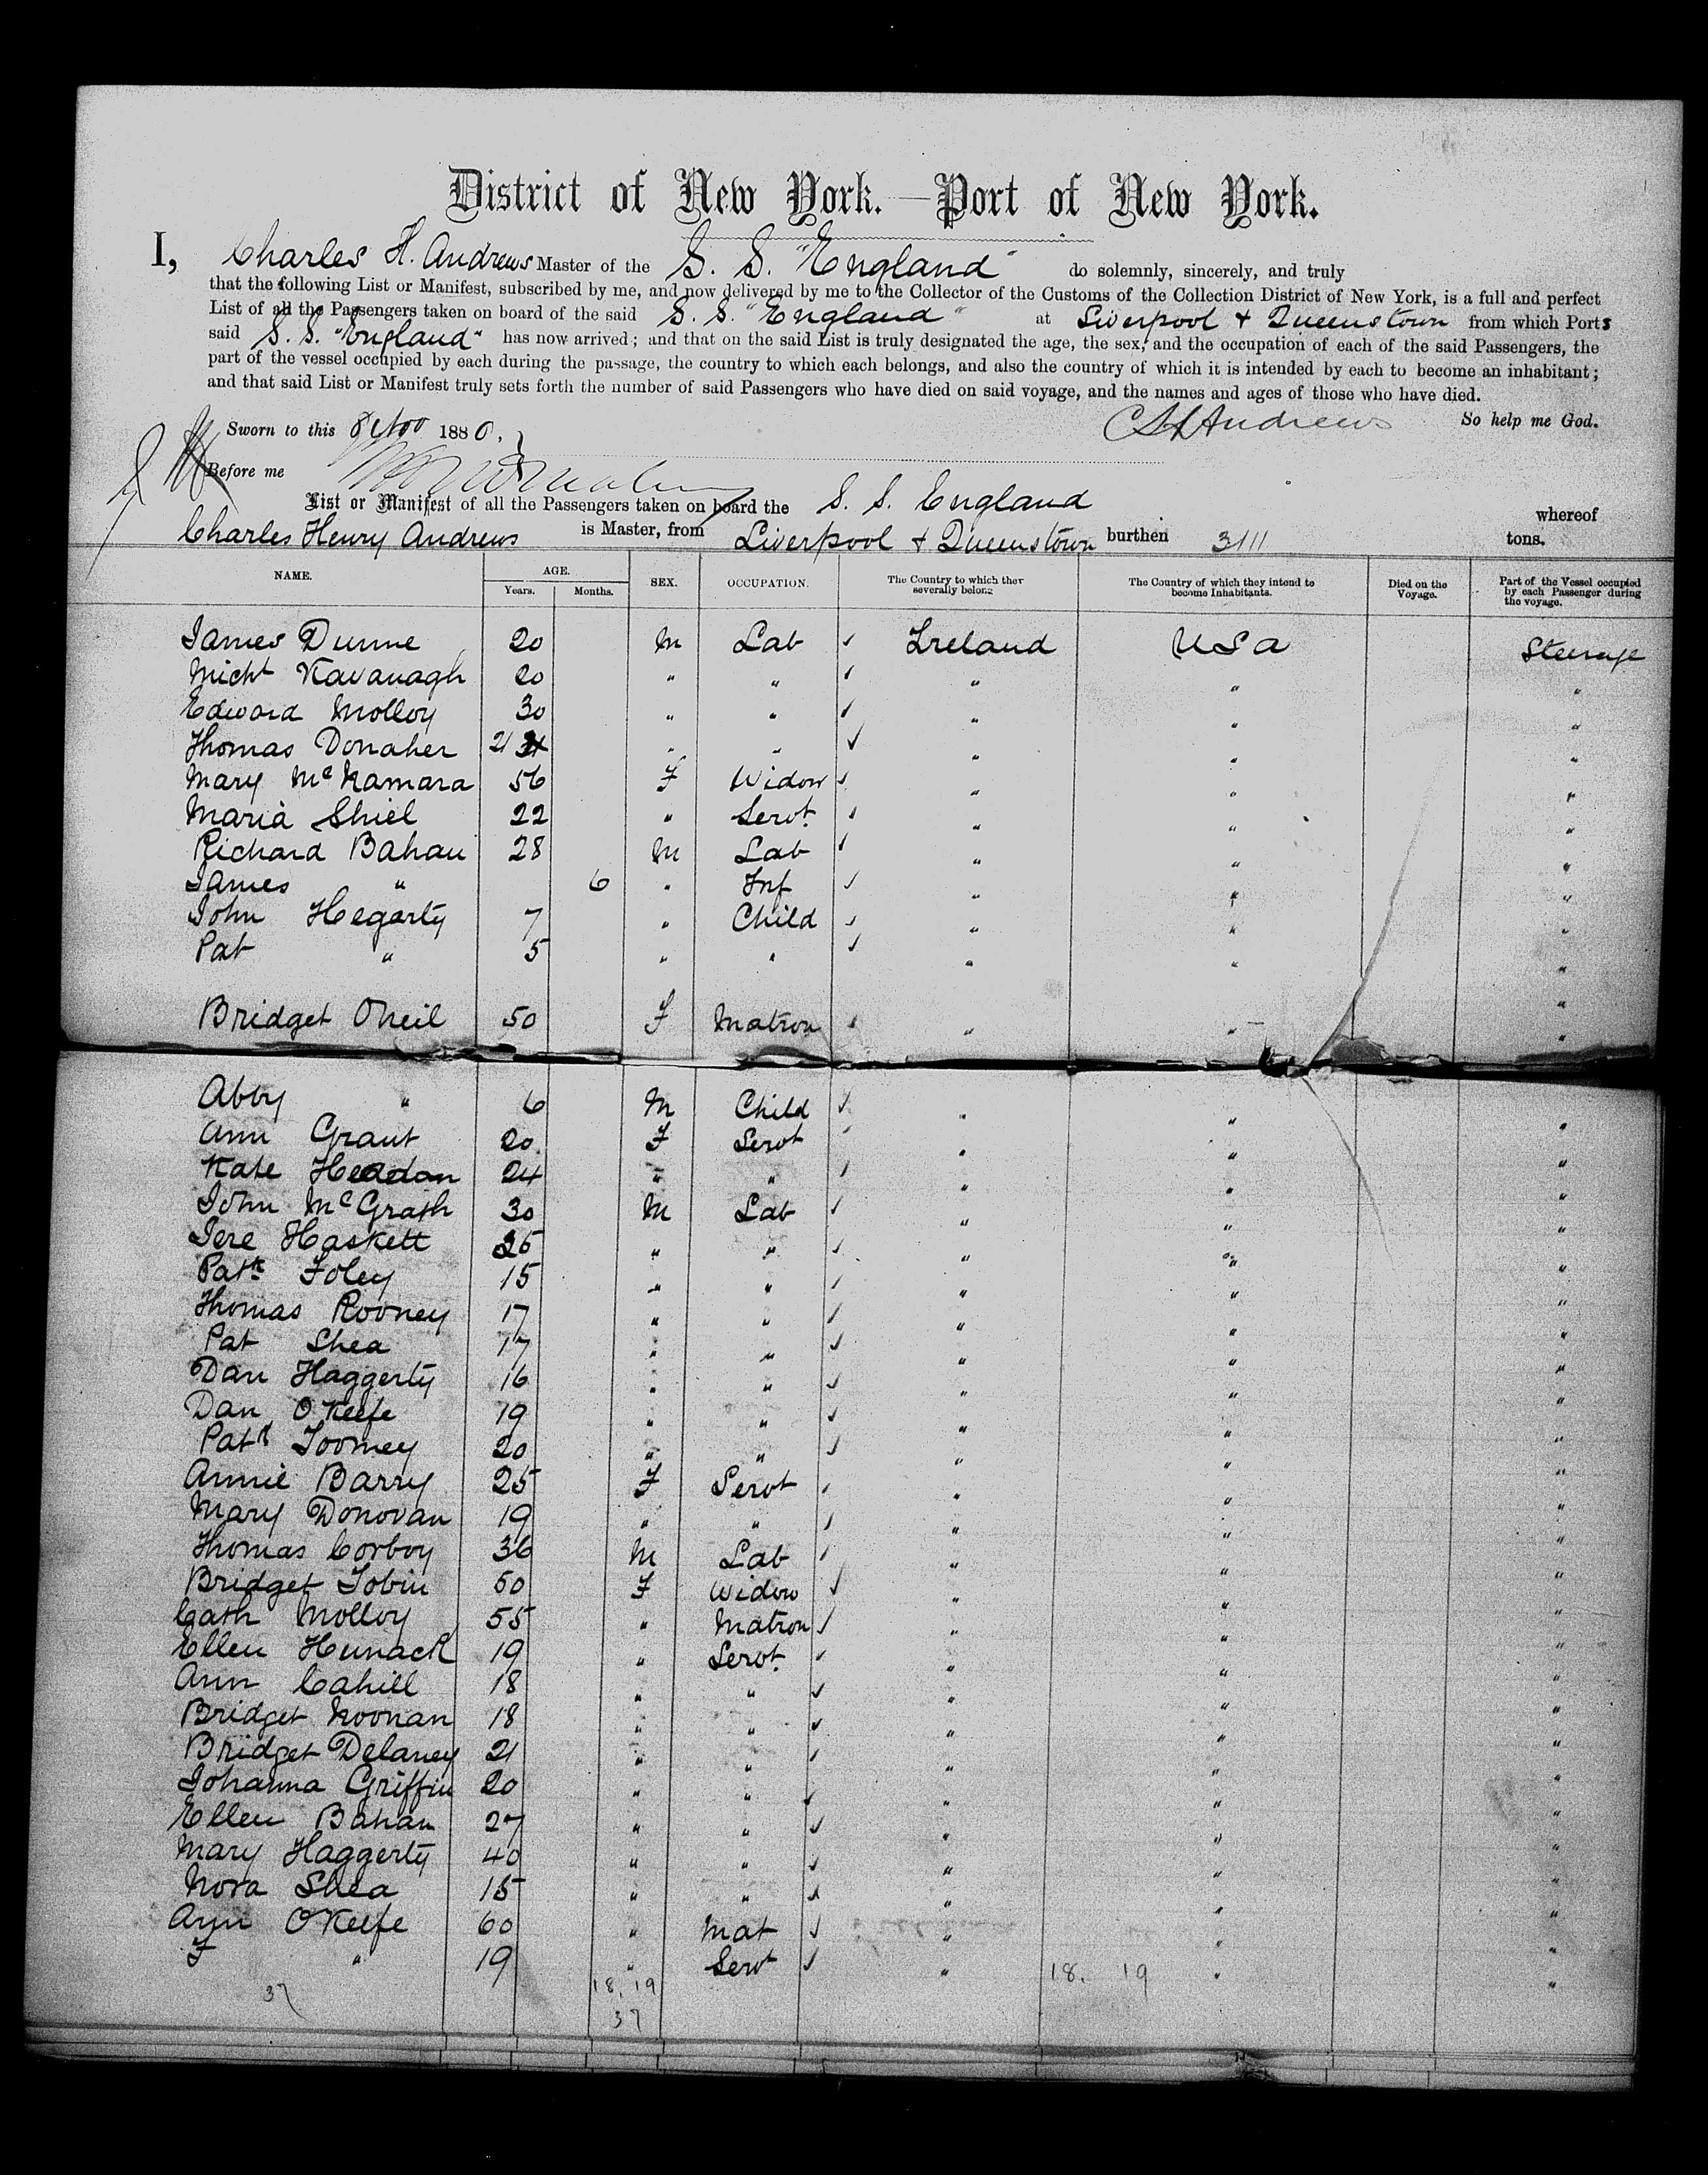 District of New York.—Port of New York.
I, Charles H. Andrews Master of the S. S. "England" do solemnly, sincerely, and truly
that the following List or Manifest, subscribed by me, and now delivered by me to the Collector of the Customs of the Collection District of New York, is a full and perfect
List of all the Passengers taken on board of the said S. S. "England" at Liverpool & Queenstown from which Ports
said S. S. "England" has now arrived; and that on the said List is truly designated the age, the sex, and the occupation of each of the said Passengers, the
part of the vessel occupied by each during the passage, the country to which each belongs, and also the country of which it is intended by each to become an inhabitant;
and that said List or Manifest truly sets forth the number of said Passengers who have died on said voyage, and the names and ages of those who have died.
Sworn to this 8 Nov 1880, C H Andrews So help me God.
Before me
List or Manifest of all the Passengers taken on board the S. S. England whereof
Charles Henry Andrews is Master, from Liverpool & Queenstown burthen 3111 tons.
NAME. AGE. Years. Months. SEX. OCCUPATION. The Country to which they severally belong The Country of which they intend to become Inhabitants. Died on the Voyage. Part of the Vessel occupied by each Passenger during the voyage.
James Dunne 20 M Lab ✓ Ireland USA Steerage
Michl Kavanagh 20 " " ✓ " " "
Edward Molloy 30 " " ✓ " " "
Thomas Donaher 21 " " ✓ " " "
Mary McNamara 56 F Widow ✓ " " "
Maria Shiel 22 " Servt. ✓ " " "
Richard Bahan 28 M Lab ✓ " " "
James " 6 " Inf ✓ " " "
John Hegarty 7 " Child ✓ " " "
Pat " 5 " " ✓ " " "
Bridget ONeil 50 F Matron ✓ " " "
Abby " 6 M Child ✓ " " "
Ann Grant 20 F Servt ✓ " " "
Kate Headon 24 " " ✓ " " "
John McGrath 30 M Lab ✓ " " "
Jere Haskett 25 " " ✓ " " "
Patk Foley 15 " " ✓ " " "
Thomas Rooney 17 " " ✓ " " "
Pat Shea 17 " " ✓ " " "
Dan Haggerty 16 " " ✓ " " "
Dan OKeefe 19 " " ✓ " " "
Patk Toomey 20 " " ✓ " " "
Annie Barry 25 F Servt ✓ " " "
Mary Donovan 19 " " ✓ " " "
Thomas Corboy 36 M Lab ✓ " " "
Bridget Tobin 50 F Widow ✓ " " "
Cath Molloy 55 " Matron ✓ " " "
Ellen 19 " Servt. ✓ " " "
Ann Cahill 18 " " ✓ " " "
Bridget Noonan 18 " " ✓ " " "
Bridget Delaney 21 " " ✓ " " "
Johanna Griffin 20 " " ✓ " " "
Ellen Bahan 27 " " ✓ " " "
Mary Haggerty 40 " " ✓ " " "
Nora Shea 15 " " ✓ " " "
Ann OKeefe 60 " Mat ✓ " " "
F " 19 " Servt ✓ " " "
37 18. 19 18. 19
37